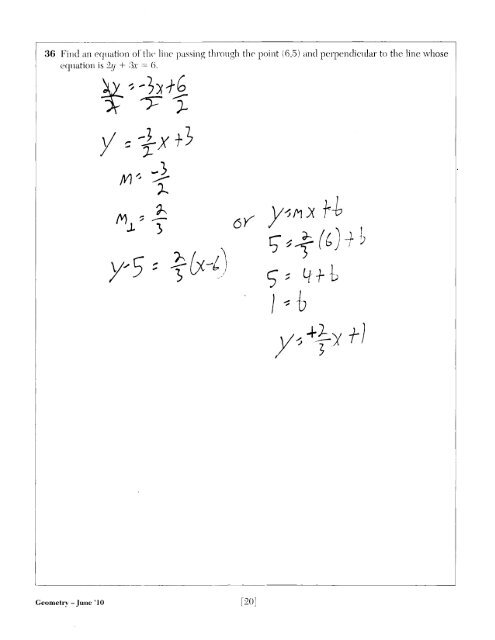 36 Find an equation of the line passing through the point (6,5) and perpendicular to the line whose
equation is 2y + 3x = 6.
2y/2 = -3x/2 + 6/2
y = -3/2 x + 3
m = -3/2
m⊥ = 2/3
y-5 = 2/3 (x-6)
or y=mx+b
5 = 2/3 (6) + b
5 = 4+b
1 = b
y = +2/3 x +1
Geometry – June '10
[20]